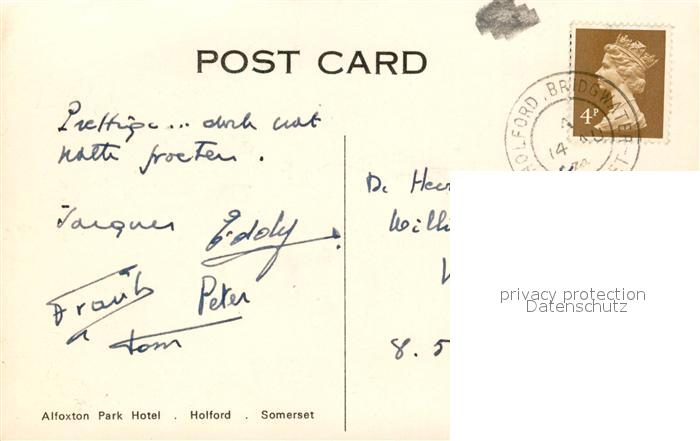 POST CARD
Prettige... doch wat
natte groeten.
Jacques Eddy
Frank Peter
Tom
Alfoxton Park Hotel . Holford . Somerset
4P
HOLFORD . BRIDGWATER
14
De Heer
Willi
8.5
privacy protection
Datenschutz